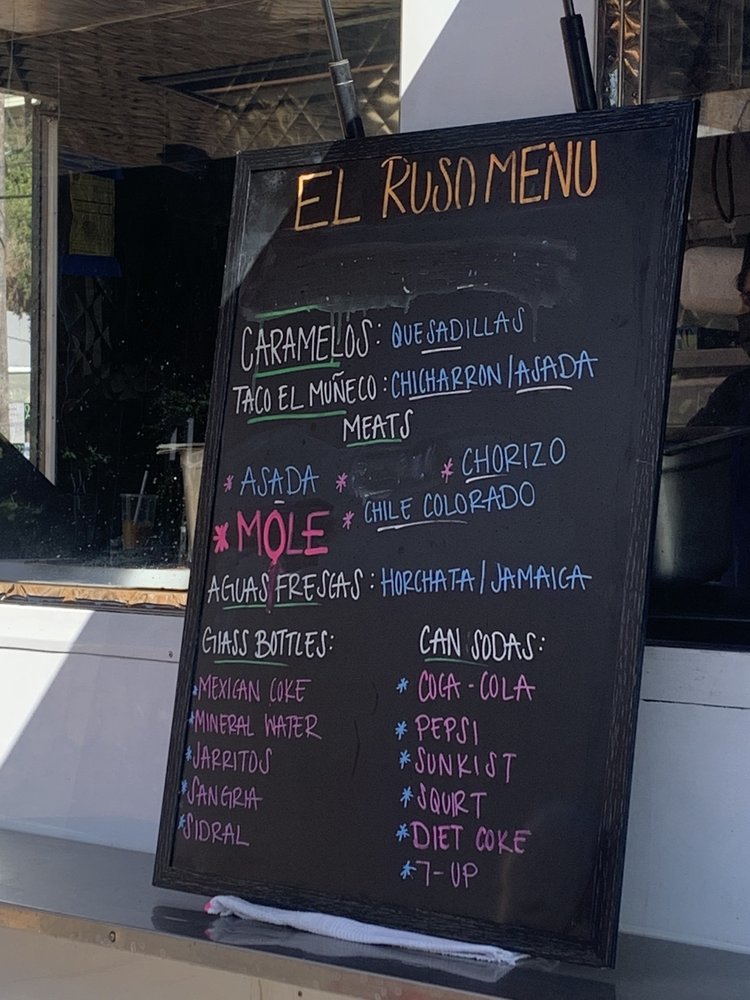 EL RUSO MENU
CARAMELOS: QUESADILLAS
TACO EL MUÑECO: CHICHARRON/ASADA
MEATS
* ASADA * * CHORIZO
* MOLE * CHILE COLORADO
AGUAS FRESCAS: HORCHATA/JAMAICA
GLASS BOTTLES:
* MEXICAN COKE
* MINERAL WATER
* JARRITOS
* SANGRIA
* SIDRAL
CAN SODAS:
* COCA-COLA
* PEPSI
* SUNKIST
* SQUIRT
* DIET COKE
* 7-UP